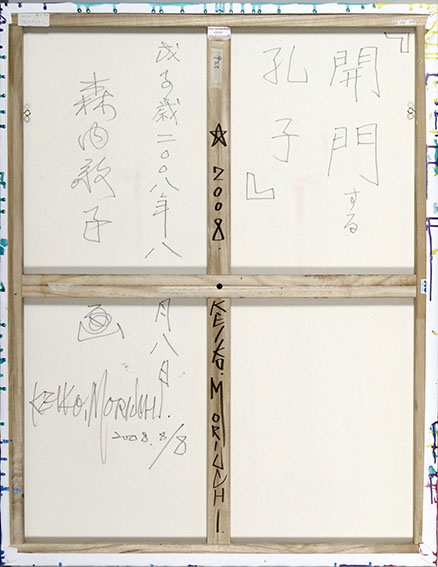 『開門する
孔子』
☆ 2008. KEIKO. MORIUCHI
戊子歳二〇〇八年八月八日
森内敬子画
KEIKO, MORIUCHI.
2008. 8/8